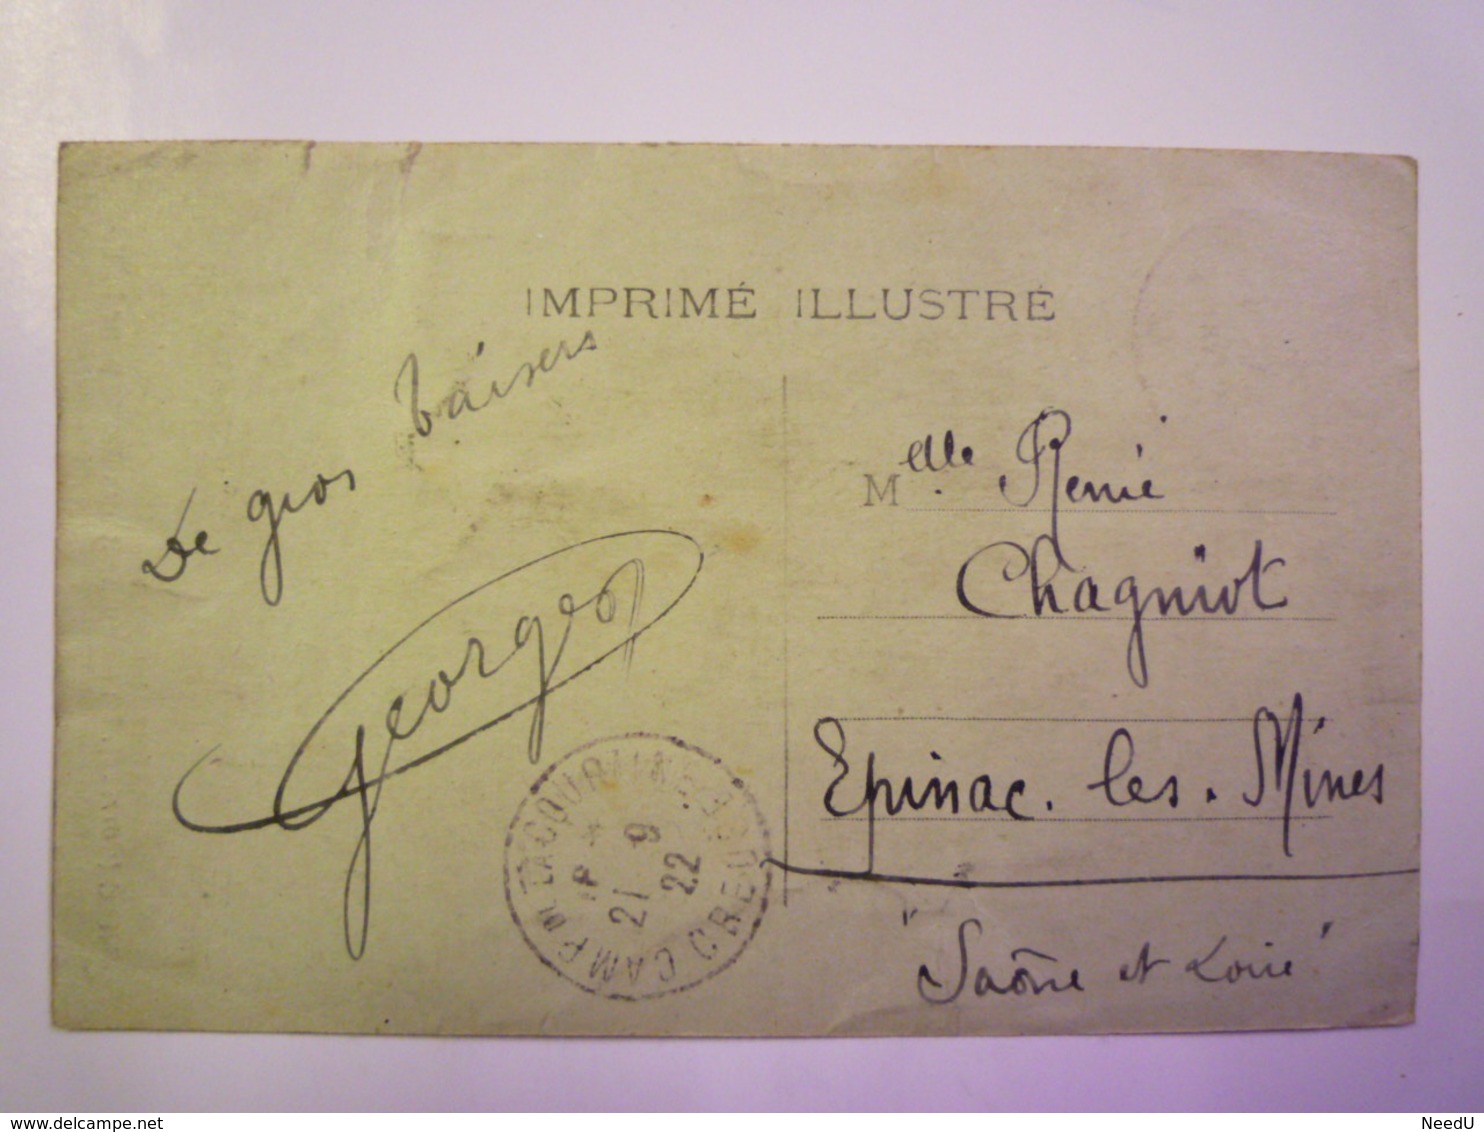 IMPRIMÉ ILLUSTRÉ
De gros baisers
Georges
CAMP DE LA COURTINE CREUSE
18 *
21 - 9
22
Melle Renée
Chagniot
Epinac. les. Mines
"Saône et Loire"
delcampe.net
NeedU